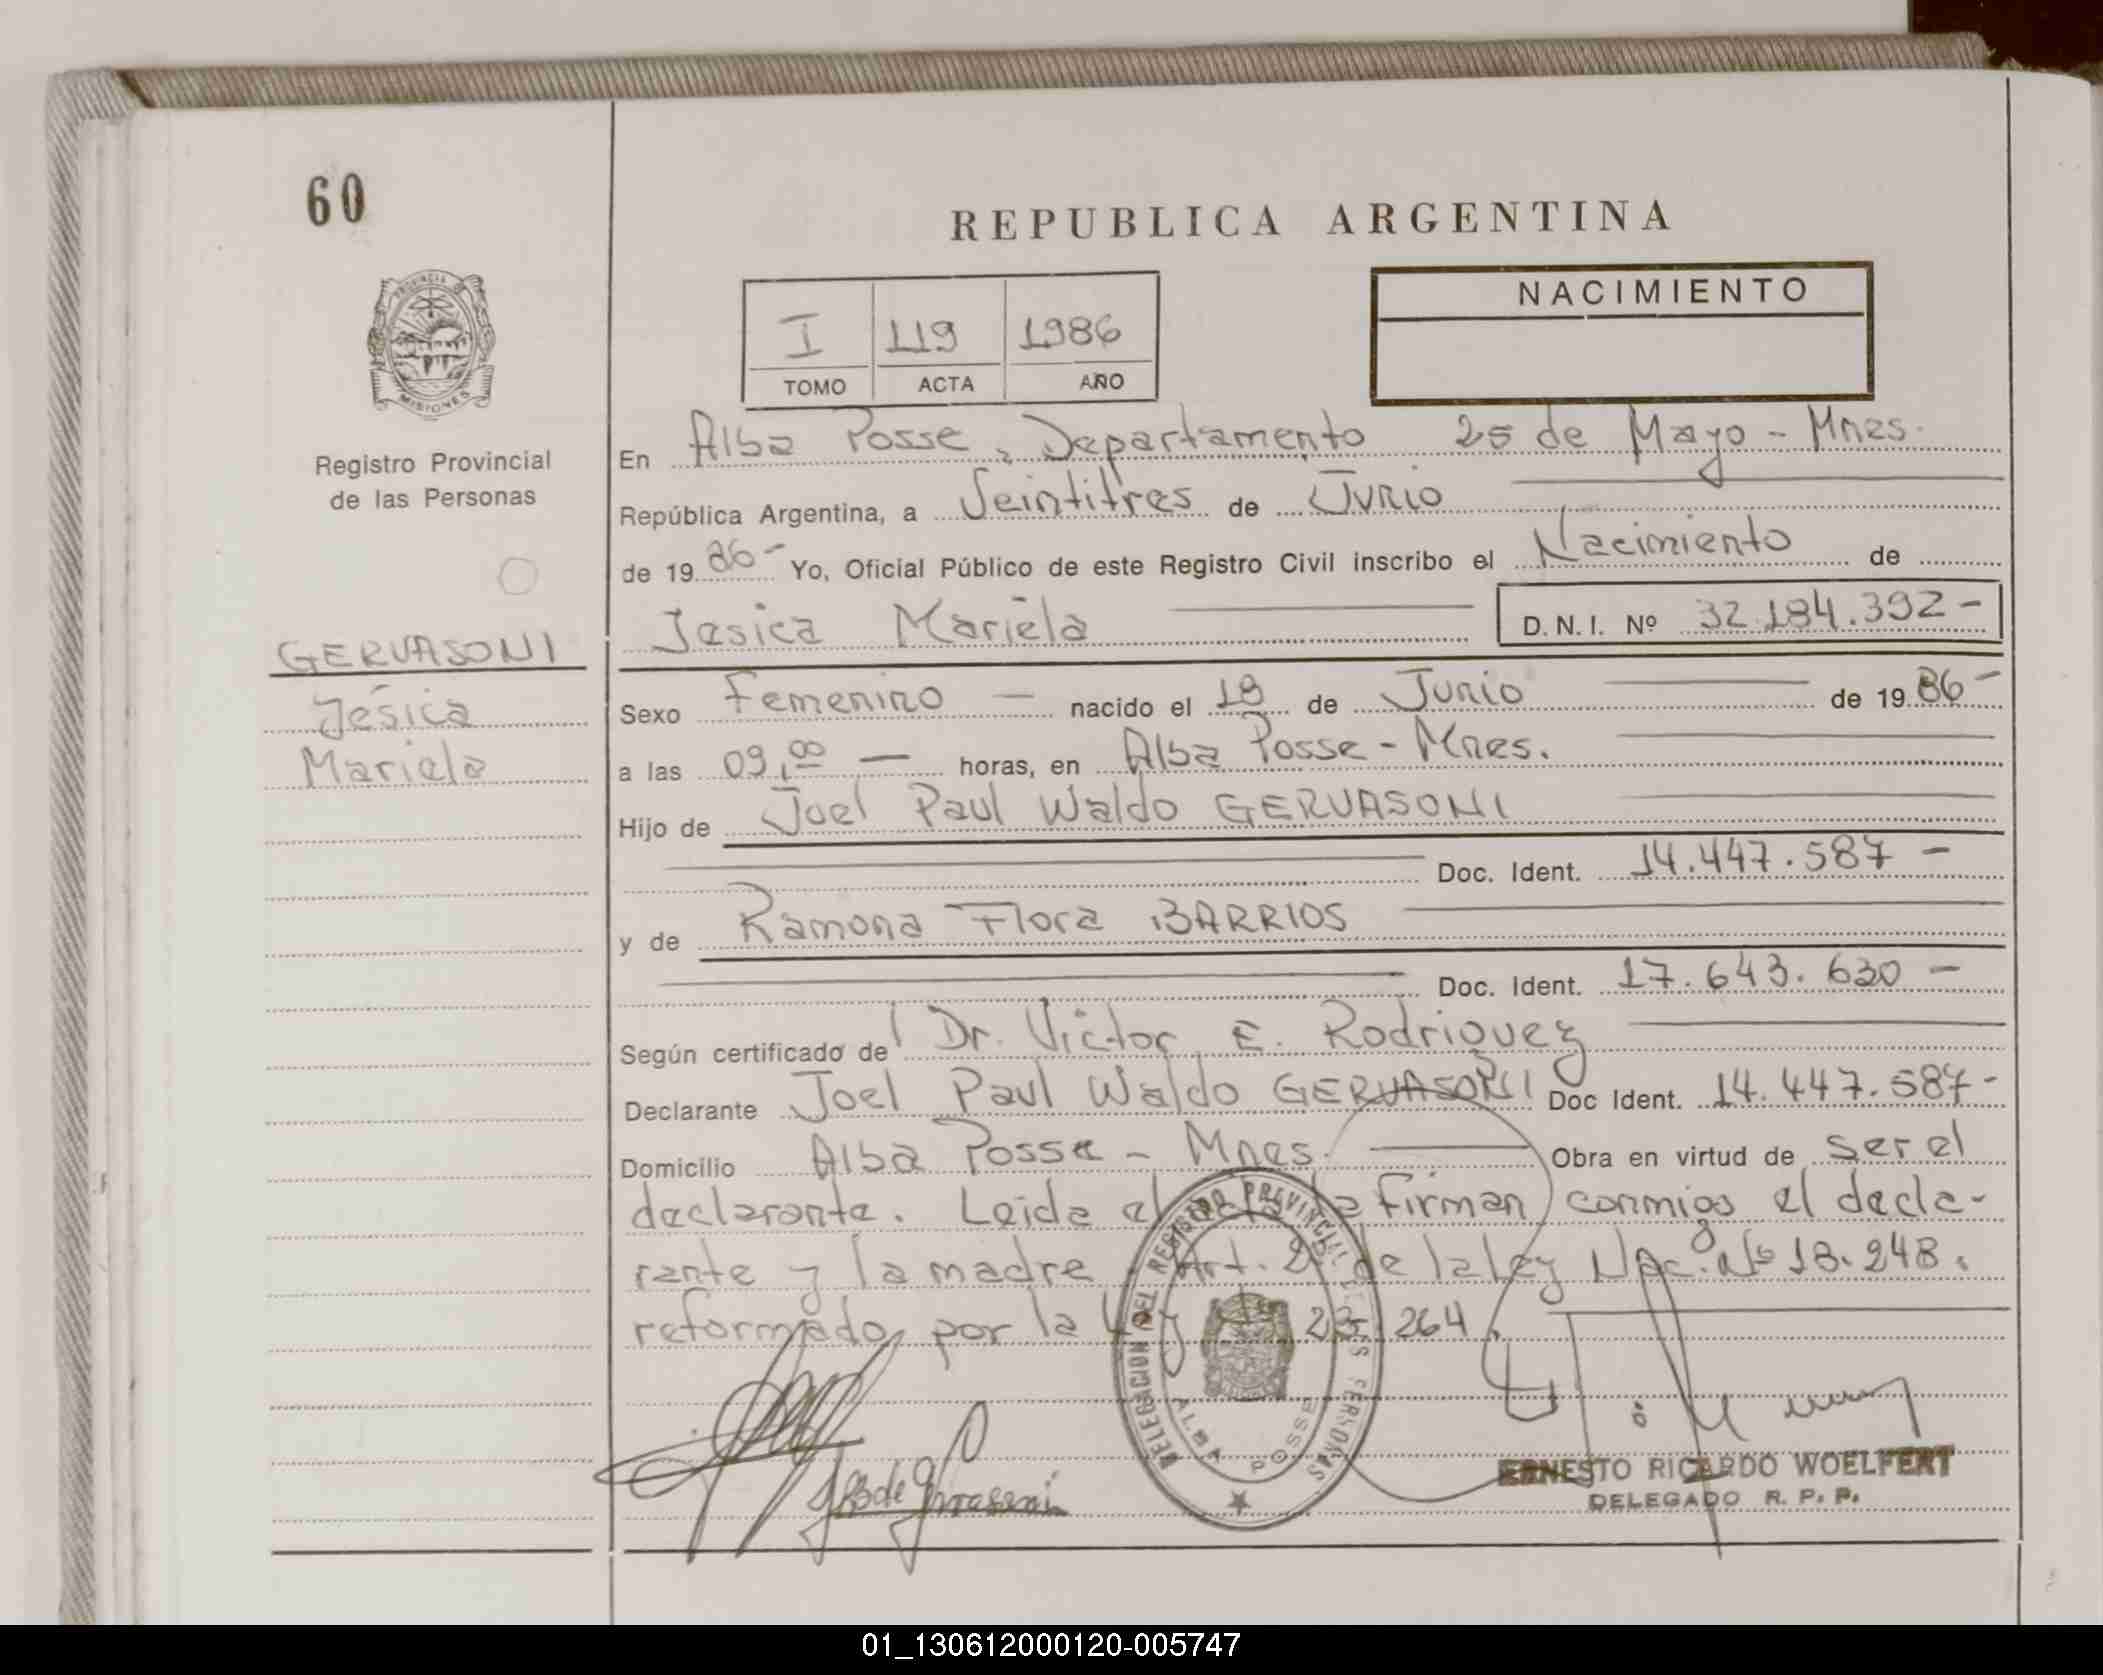 60
REPUBLICA ARGENTINA
PROVINCIA D
MISIONES
Registro Provincial
de las Personas
NACIMIENTO
I 119 1986
TOMO ACTA AÑO
En Alba Posse, Departamento 25 de Mayo - Mnes.
República Argentina, a Veintitres de Junio
de 19 86- Yo, Oficial Público de este Registro Civil inscribo el Nacimiento de
Jesica Mariela D.N.I. Nº 32.184.392-
GERVASONI
Jésica
Mariela
Sexo Femenino — nacido el 19 de Junio de 19 86-
a las 09,00 — horas, en Alba Posse - Mnes.
Hijo de Joel Paul Waldo GERVASONI
Doc. Ident. 14.447.587 -
y de Ramona Flora BARRIOS
Doc. Ident. 17.643.630 -
Según certificado de Dr. Victor E. Rodriguez
Declarante Joel Paul Waldo GERVASONI Doc Ident. 14.447.587-
Domicilio Alba Posse - Mnes. Obra en virtud de ser el
declarante. Leida el acta la firman conmigo el decla-
rante y la madre. Art. 2º de la Ley Nac. Nº 18.248.
reformado por la Ley 23.264.
DELEGACION DEL REGISTRO PROVINCIAL DE LAS PERSONAS
ALBA POSSE
ERNESTO RICARDO WOELFERT
DELEGADO R. P. P.
01_130612000120-005747